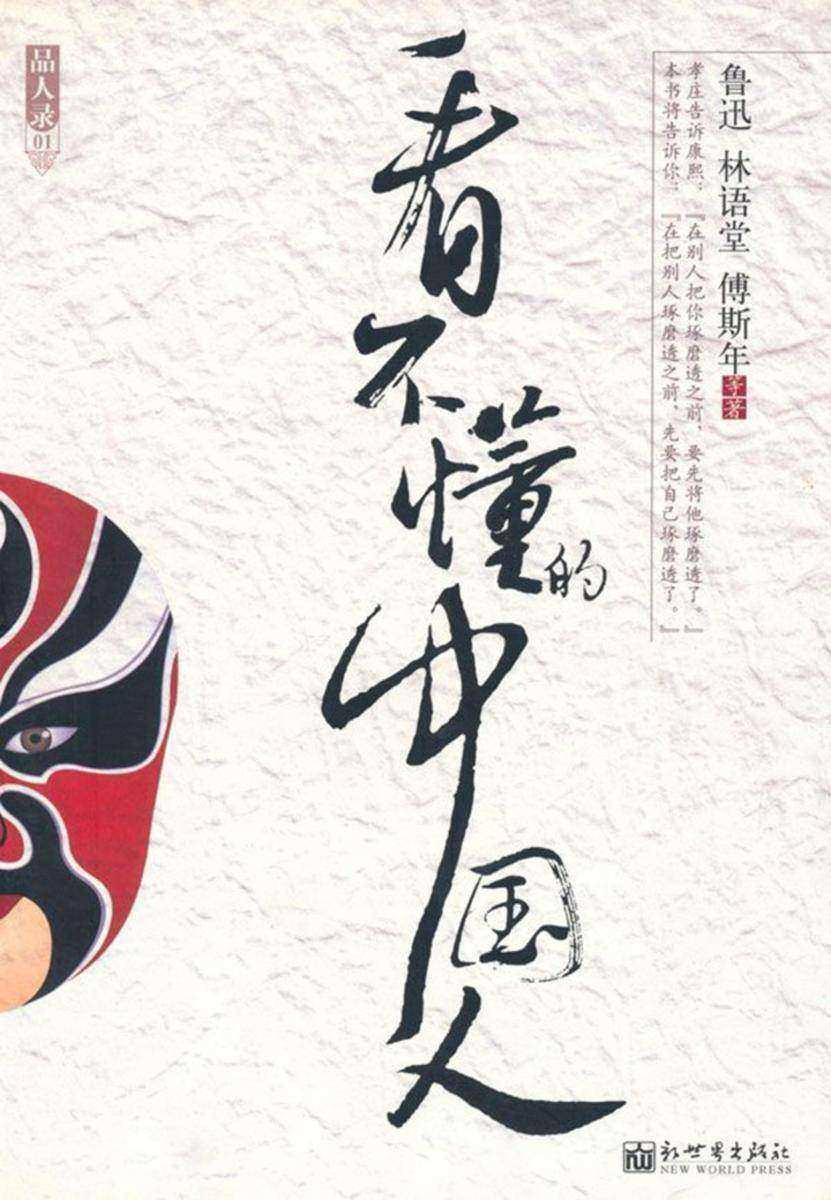 品人录
01
看不懂的中国人
鲁迅 林语堂 傅斯年 等著
孝庄告诉康熙：『在别人把你琢磨透之前，要先将他琢磨透了。』
本书将告诉你：『在把别人琢磨透之前，先要把自己琢磨透了。』
新世界出版社
NEW WORLD PRESS